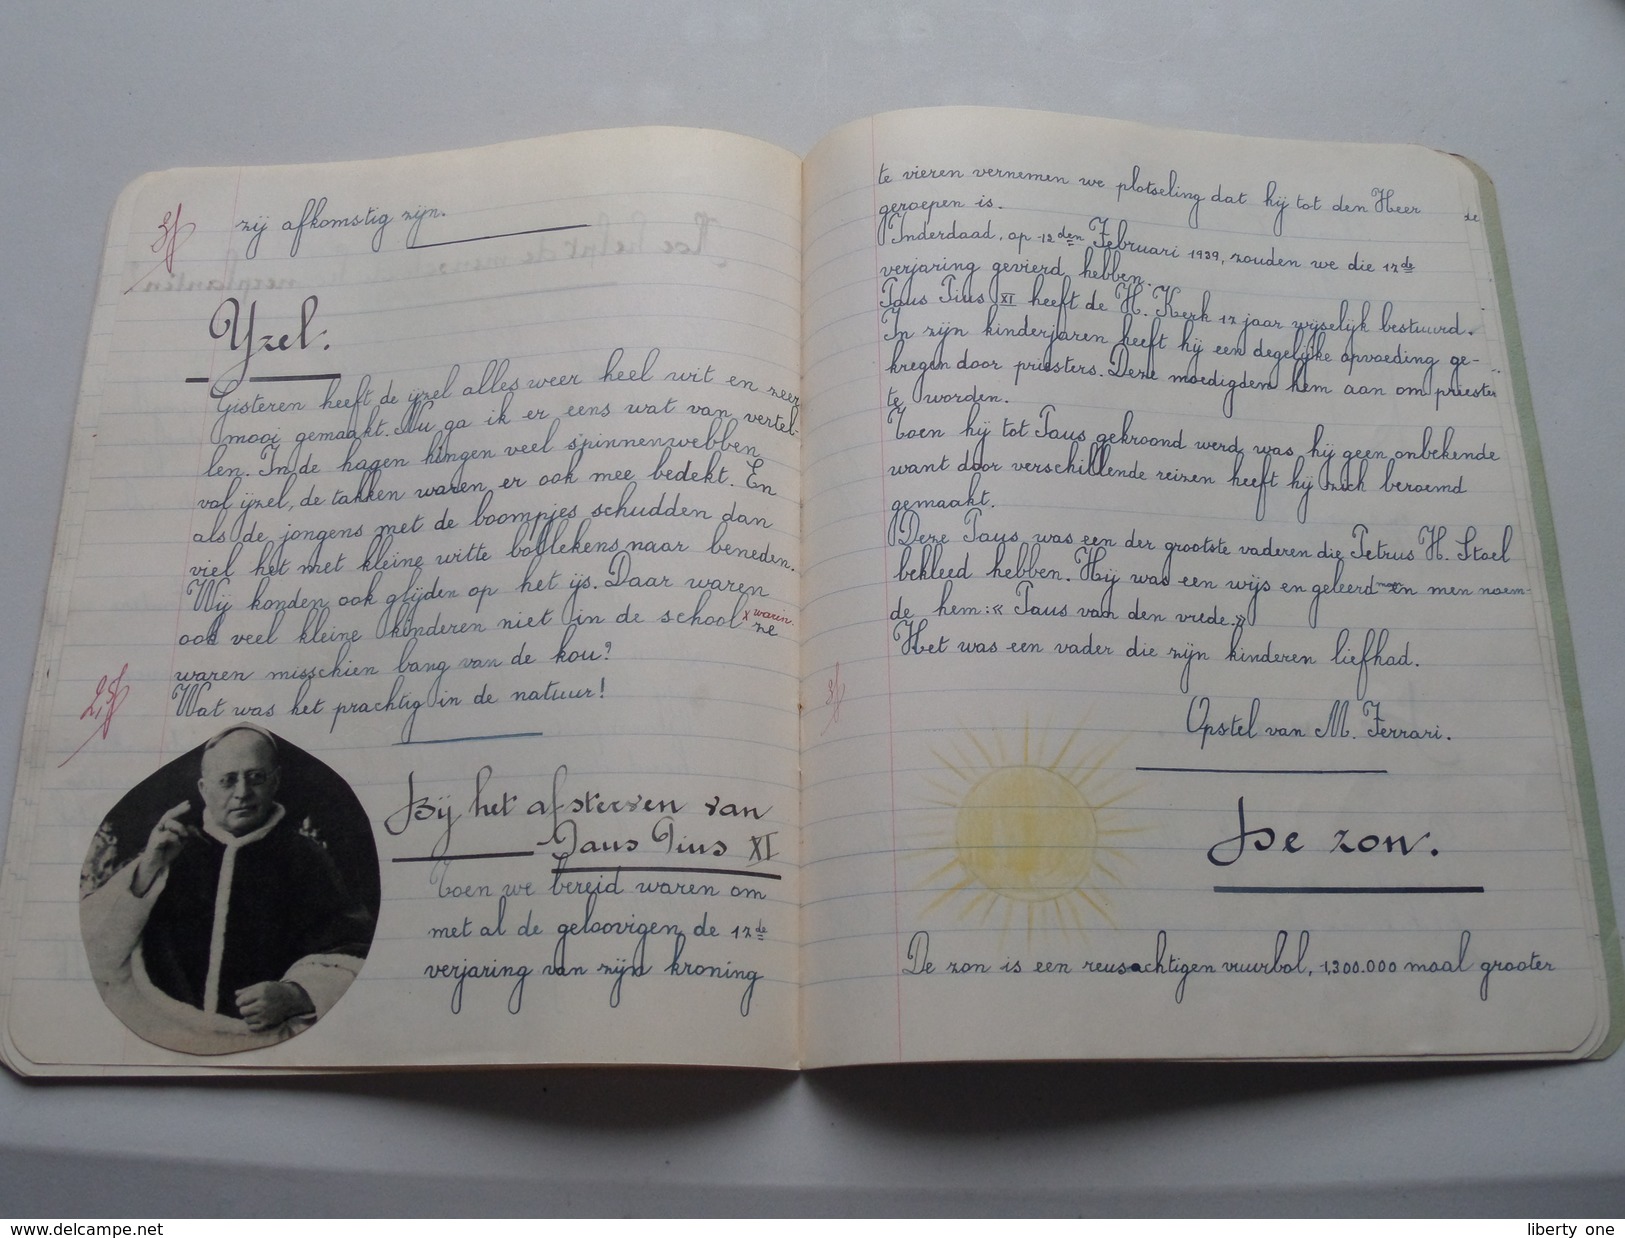 zij afkomstig zijn.
Yzel.
Gisteren heeft de ijzel alles weer heel wit en zeer
mooi gemaakt. Nu ga ik er eens wat van vertel-
len. In de hagen hingen veel spinnenwebben
vol ijzel, de takken waren er ook mee bedekt. En
als de jongens met de boompjes schudden dan
viel het met kleine witte bollekens naar beneden.
Wij konden ook glijden op het ijs. Daar waren
ook veel kleine kinderen niet in de school x waarin. ze
waren misschien bang van de kou?
Wat was het prachtig in de natuur!
Bij het afsterven van
Paus Pius XI
Toen we bereid waren om
met al de geloovigen de 17de
verjaring van zijn kroning
te vieren vernemen we plotseling dat hij tot den Heer
geroepen is.
Inderdaad, op 12den Februari 1939, zouden we die 17de
verjaring gevierd hebben.
Paus Pius XI heeft de H. Kerk 17 jaar wijselijk bestuurd.
In zijn kinderjaren heeft hij een degelijke opvoeding ge-
kregen door priesters. Deze moedigden hem aan om priester
te worden.
Toen hij tot Paus gekroond werd was hij geen onbekende
want door verschillende reizen heeft hij zich beroemd
gemaakt.
Deze Paus was een der grootste vaderen die Petrus H. Stoel
bekleed hebben. Hij was een wijs en geleerd man en men noem-
de hem: « Paus van den vrede.»
Het was een vader die zijn kinderen liefhad.
Opstel van M. Ferrari.
De zon.
De zon is een reusachtigen vuurbol, 1,300.000 maal grooter
www.delcampe.net
liberty_one